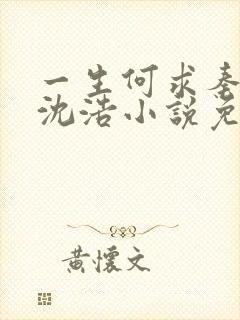 一生何求
沈浩小說免
黃懷文